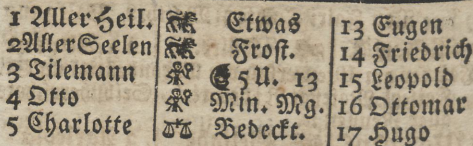 1 Aller Heil. Etwas 13 Eugen
2 Aller Seelen Frost. 14 Friedrich
3 Tilemann 5 U. 13 15 Leopold
4 Otto Min. Mg. 16 Ottomar
5 Charlotte Bedeckt. 17 Hugo